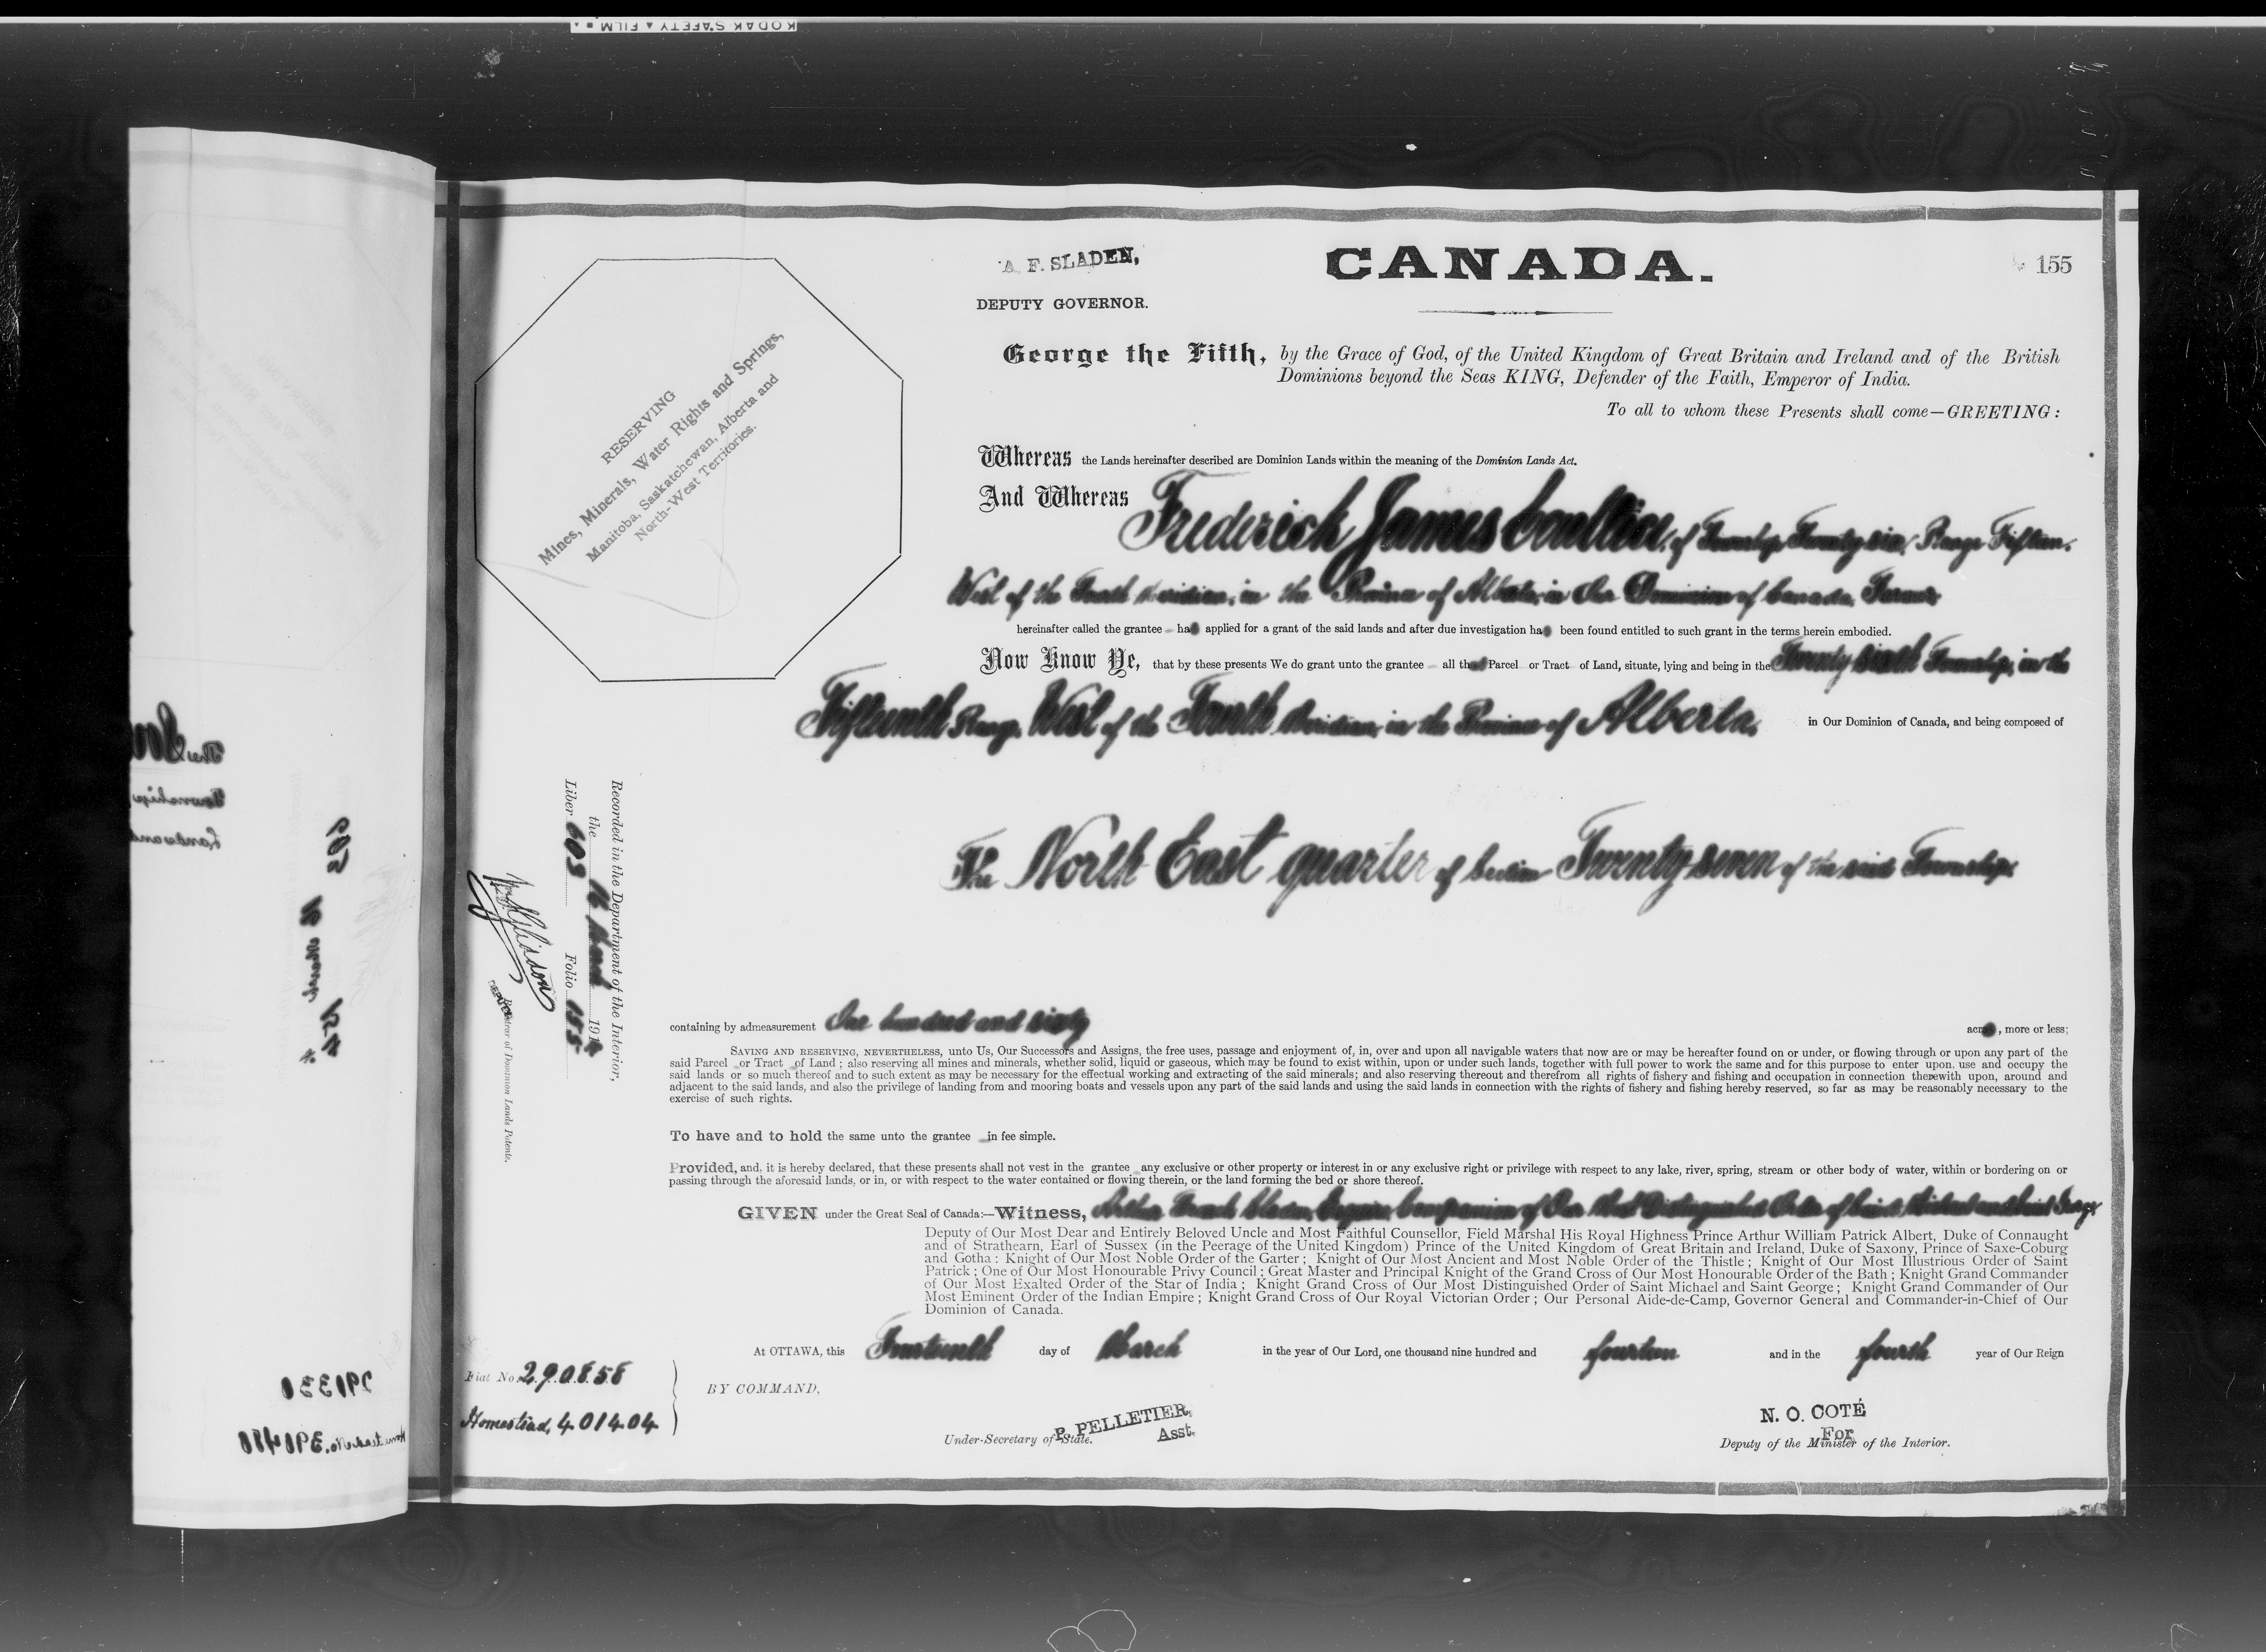 KODAK SAFETY FILM
A. F. SLADEN,
DEPUTY GOVERNOR.
CANADA.
155
George the Fifth, by the Grace of God, of the United Kingdom of Great Britain and Ireland and of the British
Dominions beyond the Seas KING, Defender of the Faith, Emperor of India.
To all to whom these Presents shall come—GREETING:
RESERVING
Mines, Minerals, Water Rights and Springs,
Manitoba, Saskatchewan, Alberta and
North-West Territories.
Whereas the Lands hereinafter described are Dominion Lands within the meaning of the Dominion Lands Act.
And Whereas Frederick James of Township Twenty six, Range Fifteen,
West of the Fourth Meridian, in the Province of Alberta, in Our Dominion of Canada, Farmer
hereinafter called the grantee has applied for a grant of the said lands and after due investigation has been found entitled to such grant in the terms herein embodied.
Now Know Ye, that by these presents We do grant unto the grantee all that Parcel or Tract of Land, situate, lying and being in the Twenty sixth Township, in the
Fifteenth Range, West of the Fourth Meridian, in the Province of Alberta, in Our Dominion of Canada, and being composed of
The North East quarter of Section Twenty seven of the said Township
Recorded in the Department of the Interior,
the 16 March 1914
Liber 603 Folio 155
DEPUTY Registrar of Dominion Lands Patents.
containing by admeasurement One hundred and sixty acres, more or less;
SAVING AND RESERVING, NEVERTHELESS, unto Us, Our Successors and Assigns, the free uses, passage and enjoyment of, in, over and upon all navigable waters that now are or may be hereafter found on or under, or flowing through or upon any part of the
said Parcel or Tract of Land; also reserving all mines and minerals, whether solid, liquid or gaseous, which may be found to exist within, upon or under such lands, together with full power to work the same and for this purpose to enter upon, use and occupy the
said lands or so much thereof and to such extent as may be necessary for the effectual working and extracting of the said minerals; and also reserving thereout and therefrom all rights of fishery and fishing and occupation in connection therewith upon, around and
adjacent to the said lands, and also the privilege of landing from and mooring boats and vessels upon any part of the said lands and using the said lands in connection with the rights of fishery and fishing hereby reserved, so far as may be reasonably necessary to the
exercise of such rights.
To have and to hold the same unto the grantee in fee simple.
Provided, and, it is hereby declared, that these presents shall not vest in the grantee any exclusive or other property or interest in or any exclusive right or privilege with respect to any lake, river, spring, stream or other body of water, within or bordering on or
passing through the aforesaid lands, or in, or with respect to the water contained or flowing therein, or the land forming the bed or shore thereof.
GIVEN under the Great Seal of Canada:—Witness, Arthur French Sladen, Esquire, Companion of Our Most Distinguished Order of Saint Michael and Saint George,
Deputy of Our Most Dear and Entirely Beloved Uncle and Most Faithful Counsellor, Field Marshal His Royal Highness Prince Arthur William Patrick Albert, Duke of Connaught
and of Strathearn, Earl of Sussex (in the Peerage of the United Kingdom) Prince of the United Kingdom of Great Britain and Ireland, Duke of Saxony, Prince of Saxe-Coburg
and Gotha: Knight of Our Most Noble Order of the Garter; Knight of Our Most Ancient and Most Noble Order of the Thistle; Knight of Our Most Illustrious Order of Saint
Patrick; One of Our Most Honourable Privy Council; Great Master and Principal Knight of the Grand Cross of Our Most Honourable Order of the Bath; Knight Grand Commander
of Our Most Exalted Order of the Star of India; Knight Grand Cross of Our Most Distinguished Order of Saint Michael and Saint George; Knight Grand Commander of Our
Most Eminent Order of the Indian Empire; Knight Grand Cross of Our Royal Victorian Order; Our Personal Aide-de-Camp, Governor General and Commander-in-Chief of Our
Dominion of Canada.
At OTTAWA, this Fourteenth day of March in the year of Our Lord, one thousand nine hundred and fourteen and in the fourth year of Our Reign
Fiat No. 290858
Homestead, 401404
BY COMMAND,
P. PELLETIER,
Asst.
Under-Secretary of State.
N. O. COTÉ
For
Deputy of the Minister of the Interior.
The
Township,
Land and
291330
Homestead No. 390480